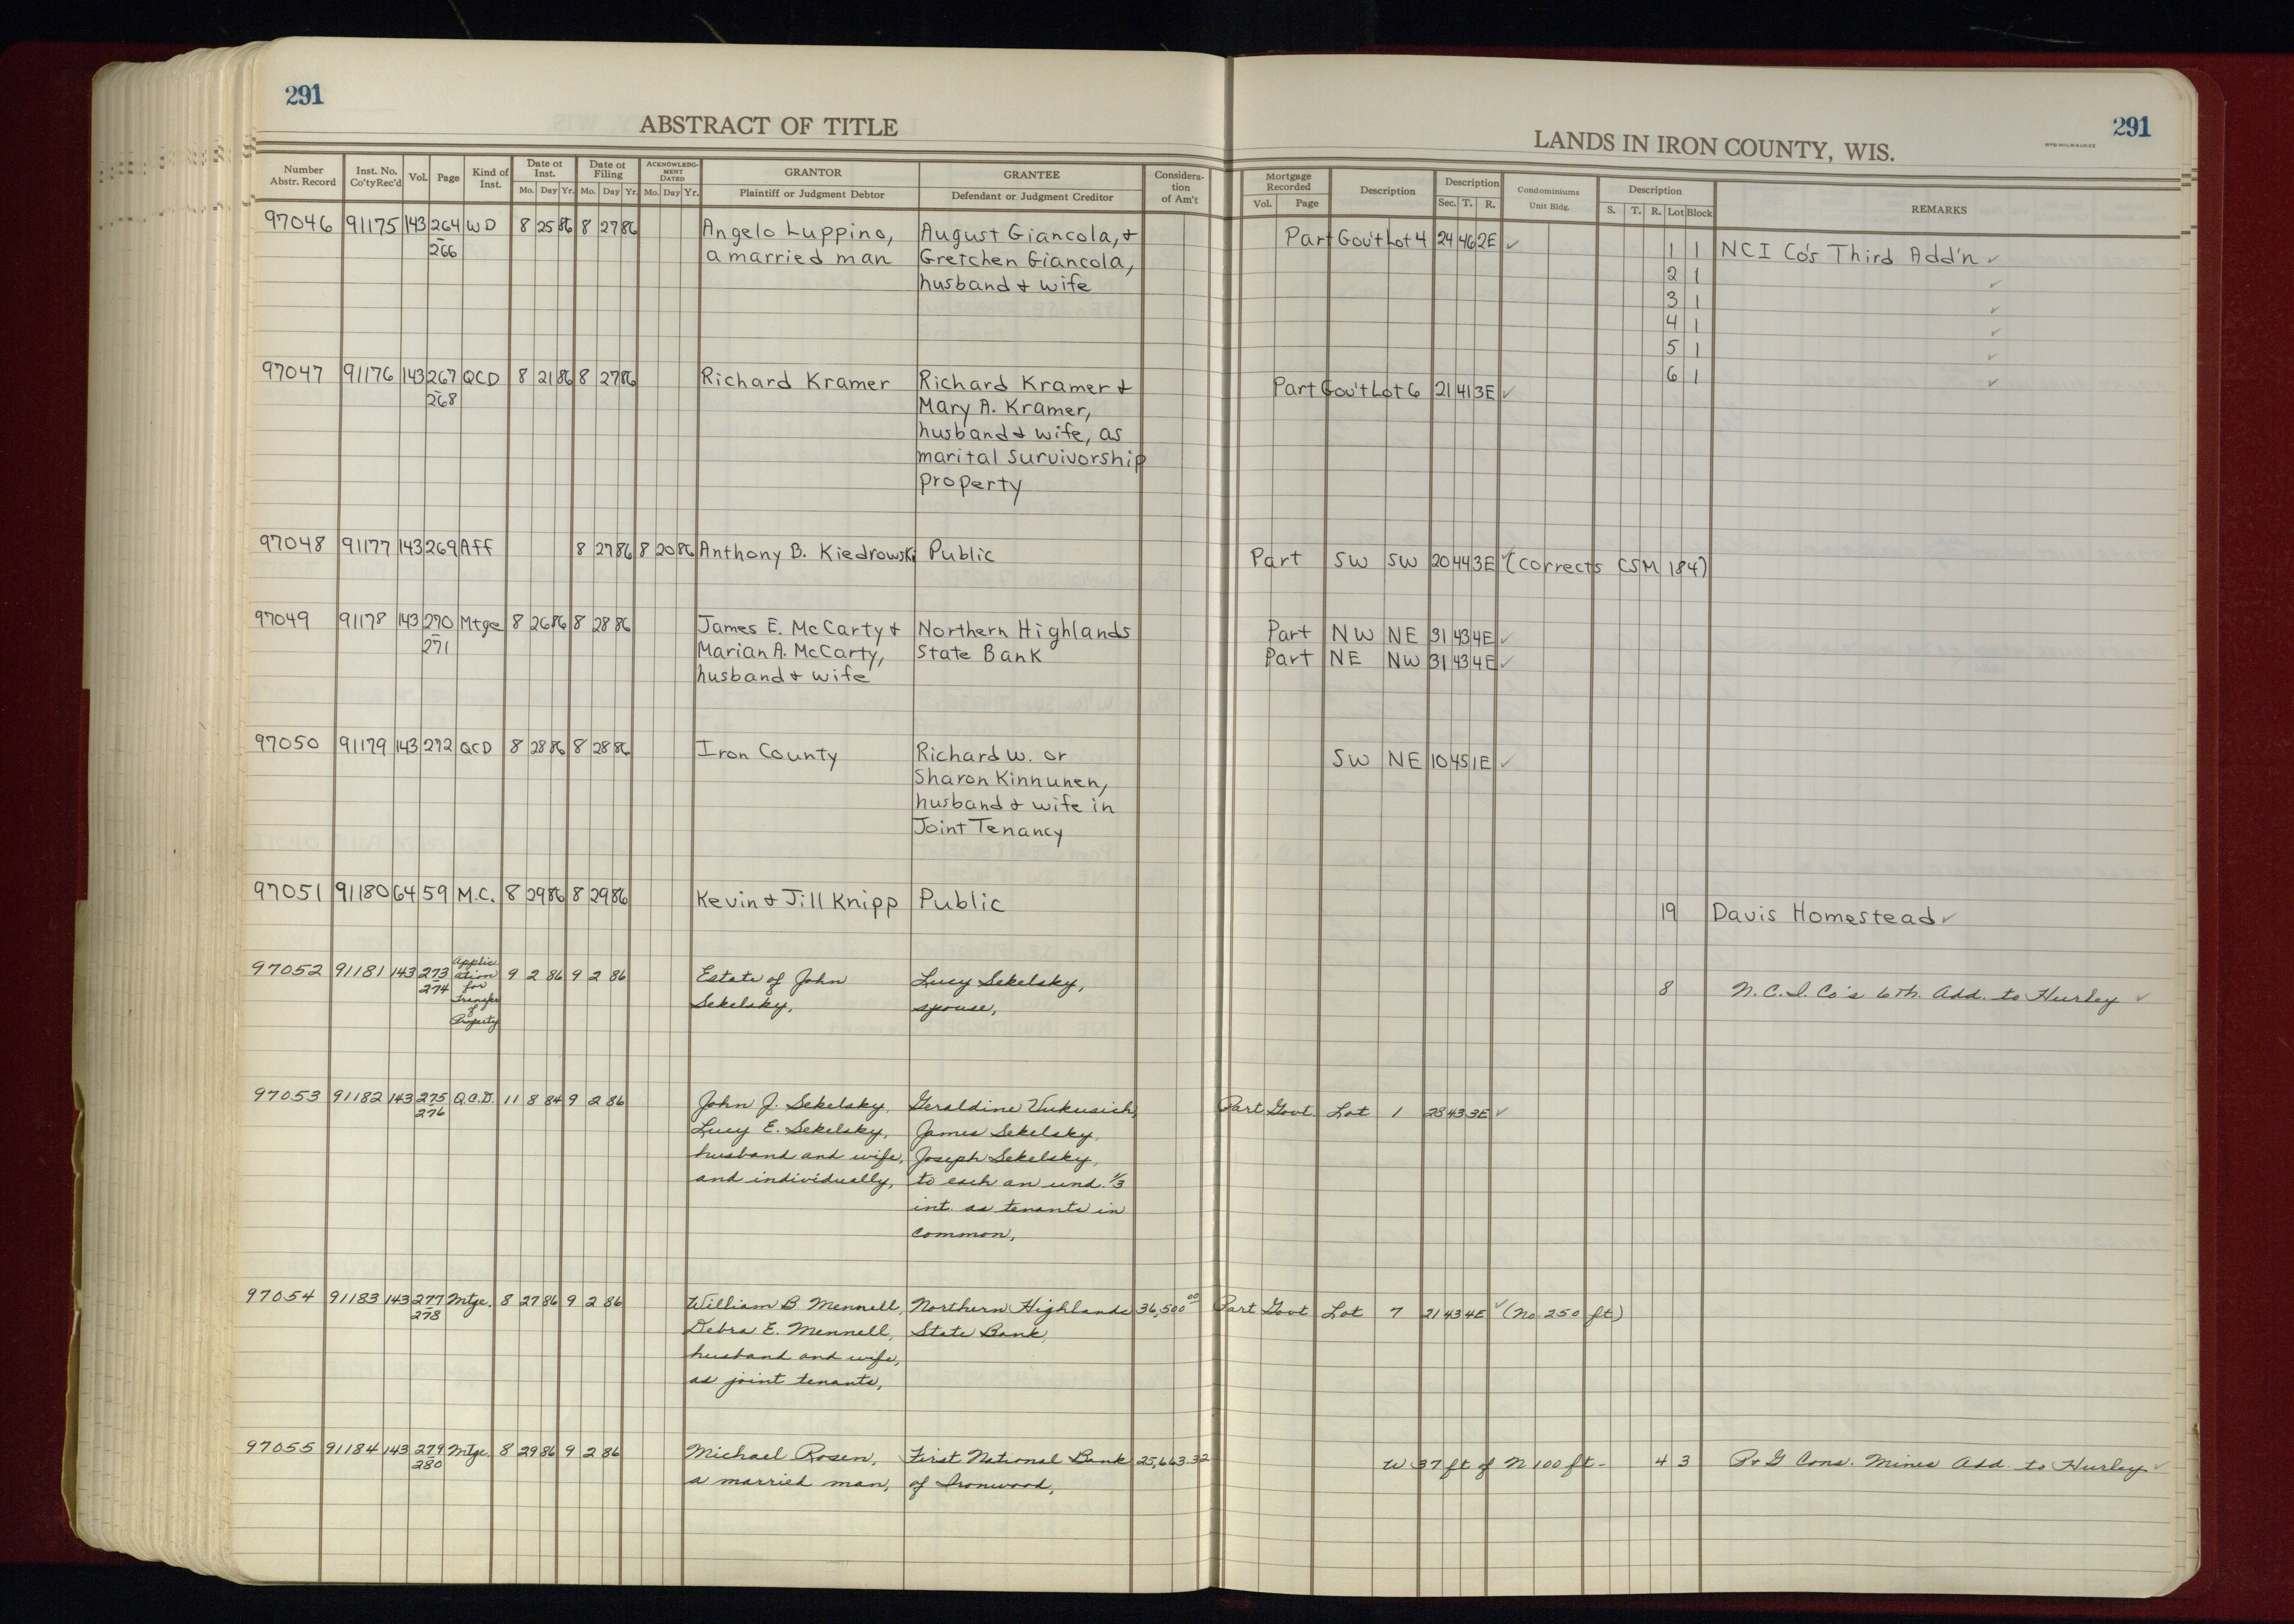 291
291
ABSTRACT OF TITLE
LANDS IN IRON COUNTY, WIS.
WPB-MILWAUKEE
Number Abstr. Record
Inst. No. Co'ty Rec'd
Vol.
Page
Kind of Inst.
Date of Inst.
Mo. Day Yr.
Date of Filing
Mo. Day Yr.
ACKNOWLEDG-MENT DATED
Mo. Day Yr.
GRANTOR
Plaintiff or Judgment Debtor
GRANTEE
Defendant or Judgment Creditor
Considera-tion of Am't
Mortgage Recorded
Vol. Page
Description
Description
Sec. T. R.
Condominiums
Unit Bldg.
Description
S. T. R. Lot Block
REMARKS
97046 91175 143 264 WD 8 25 86 8 27 86 Angelo Luppino, August Giancola, & Part Gov't Lot 4 24 46 2E ✓ 1 1 NCI Co's Third Add'n ✓
- 266 a married man Gretchen Giancola, 2 1 ✓
husband & wife 3 1 ✓
4 1 ✓
5 1 ✓
6 1 ✓
97047 91176 143 267 QCD 8 21 86 8 27 86 Richard Kramer Richard Kramer & Part Gov't Lot 6 21 41 3E ✓
- 268 Mary A. Kramer,
husband & wife, as
marital survivorship
property
97048 91177 143 269 Aff 8 27 86 8 20 86 Anthony B. Kiedrowski Public Part SW SW 20 44 3E ✓ (corrects CSM 184)
97049 91178 143 270 Mtge 8 26 86 8 28 86 James E. McCarty & Northern Highlands Part NW NE 31 43 4E ✓
- 271 Marian A. McCarty, State Bank Part NE NW 31 43 4E ✓
husband & wife
97050 91179 143 272 QCD 8 28 86 8 28 86 Iron County Richard W. or SW NE 10 45 1E ✓
Sharon Kinnunen,
husband & wife in
Joint Tenancy
97051 91180 64 59 M.C. 8 29 86 8 29 86 Kevin & Jill Knipp Public 19 Davis Homestead ✓
97052 91181 143 273 Applic 9 2 86 9 2 86 Estate of John Lucy Sekelsky, 8 N.C.I. Co's 6th. Add. to Hurley ✓
- 274 ation Sekelsky, spouse,
for
Transfer
of
Property
97053 91182 143 275 Q.C.D. 11 8 84 9 2 86 John J. Sekelsky, Geraldine Vukusich, Part Govt. Lot 1 28 43 3E ✓
- 276 Lucy E. Sekelsky, James Sekelsky,
husband and wife, Joseph Sekelsky,
and individually, to each an und. 1/3
int. as tenants in
common,
97054 91183 143 277 Mtge. 8 27 86 9 2 86 William B. Mennell, Northern Highlands 36,500.00 Part Govt Lot 7 21 43 4E ✓ (No 250 ft)
- 278 Debra E. Mennell, State Bank,
husband and wife,
as joint tenants,
97055 91184 143 279 Mtge. 8 29 86 9 2 86 Michael Rosen, First National Bank 25,663.32 W 37 ft of N 100 ft - 4 3 P & G Cons. Mines Add. to Hurley ✓
- 280 a married man, of Ironwood,